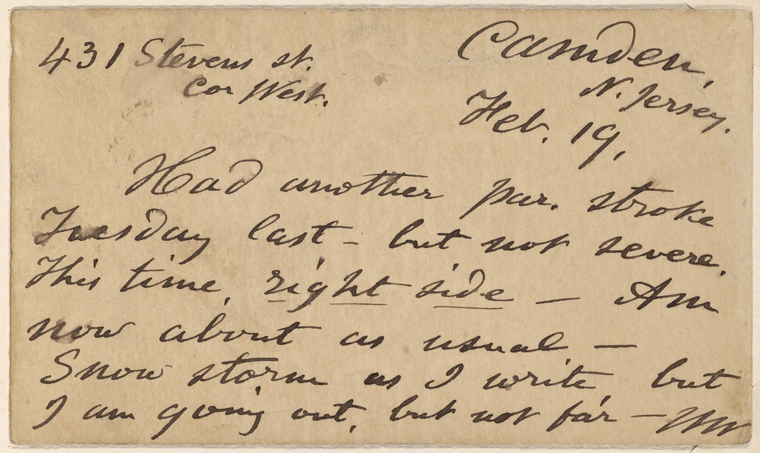 431 Stevens st.
cor West.
Camden,
N. Jersey.
Feb. 19,
Had another par. stroke
Tuesday last – but not severe.
This time, right side – Am
now about as usual –
Snow storm as I write but
I am going out, but not far – WW